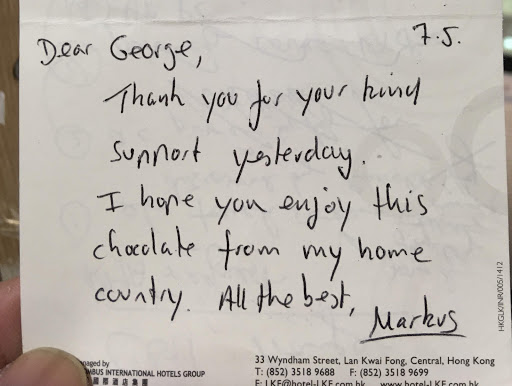 7.5.
Dear George,
Thank you for your kind
support yesterday.
I hope you enjoy this
chocolate from my home
country. All the best,
Markus
HKGLK/INR/005/1412
33 Wyndham Street, Lan Kwai Fong, Central, Hong Kong
INTERNATIONAL HOTELS GROUP
T: (852) 3518 9688 F: (852) 3518 9699
國際酒店集團
E: LKF@hotel-LKF.com.hk www.hotel-LKF.com.hk